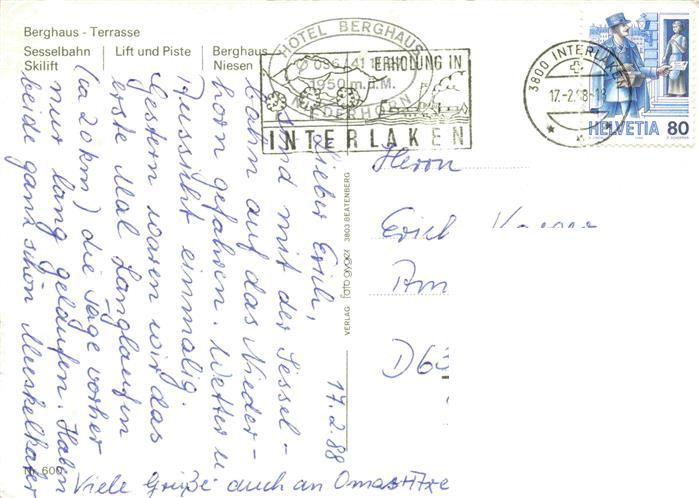 Berghaus - Terrasse
Sesselbahn
Skilift
Lift und Piste
Berghaus
Niesen
HOTEL BERGHAUS
036/41 1
1950 m.ü.M.
NIEDERHORN
ERHOLUNG IN
INTERLAKEN
3800 INTERLAKEN
17.-2.88-18
HELVETIA 80
17.2.88
Lieber Erich,
sind mit der Sessel-
bahn auf das Nieder-
horn gefahren. Wetter u
Aussicht einmalig.
Gestern waren wir das
erste Mal Langlaufen
(ca 20 km) die Tage vorher
nur lang gelaufen. Haben
beide ganz schön Muskelkater
Viele Grüße auch an Oma
VERLAG foto gyger 3803 BEATENBERG
Herrn
Erich
Am
D63
600